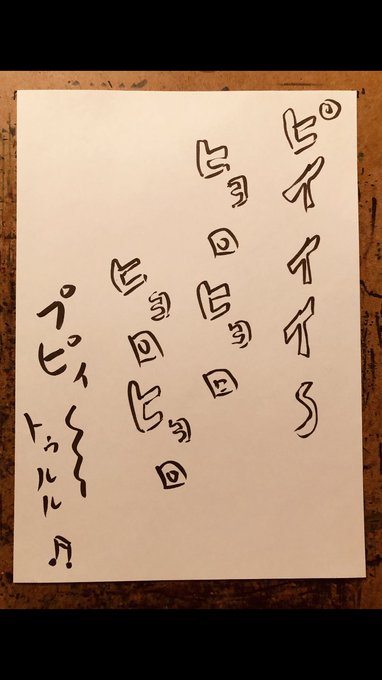 ピイイイ〜
ヒョロヒョロ
ヒョロヒョロ
プピィ〜〜
トゥルル♬